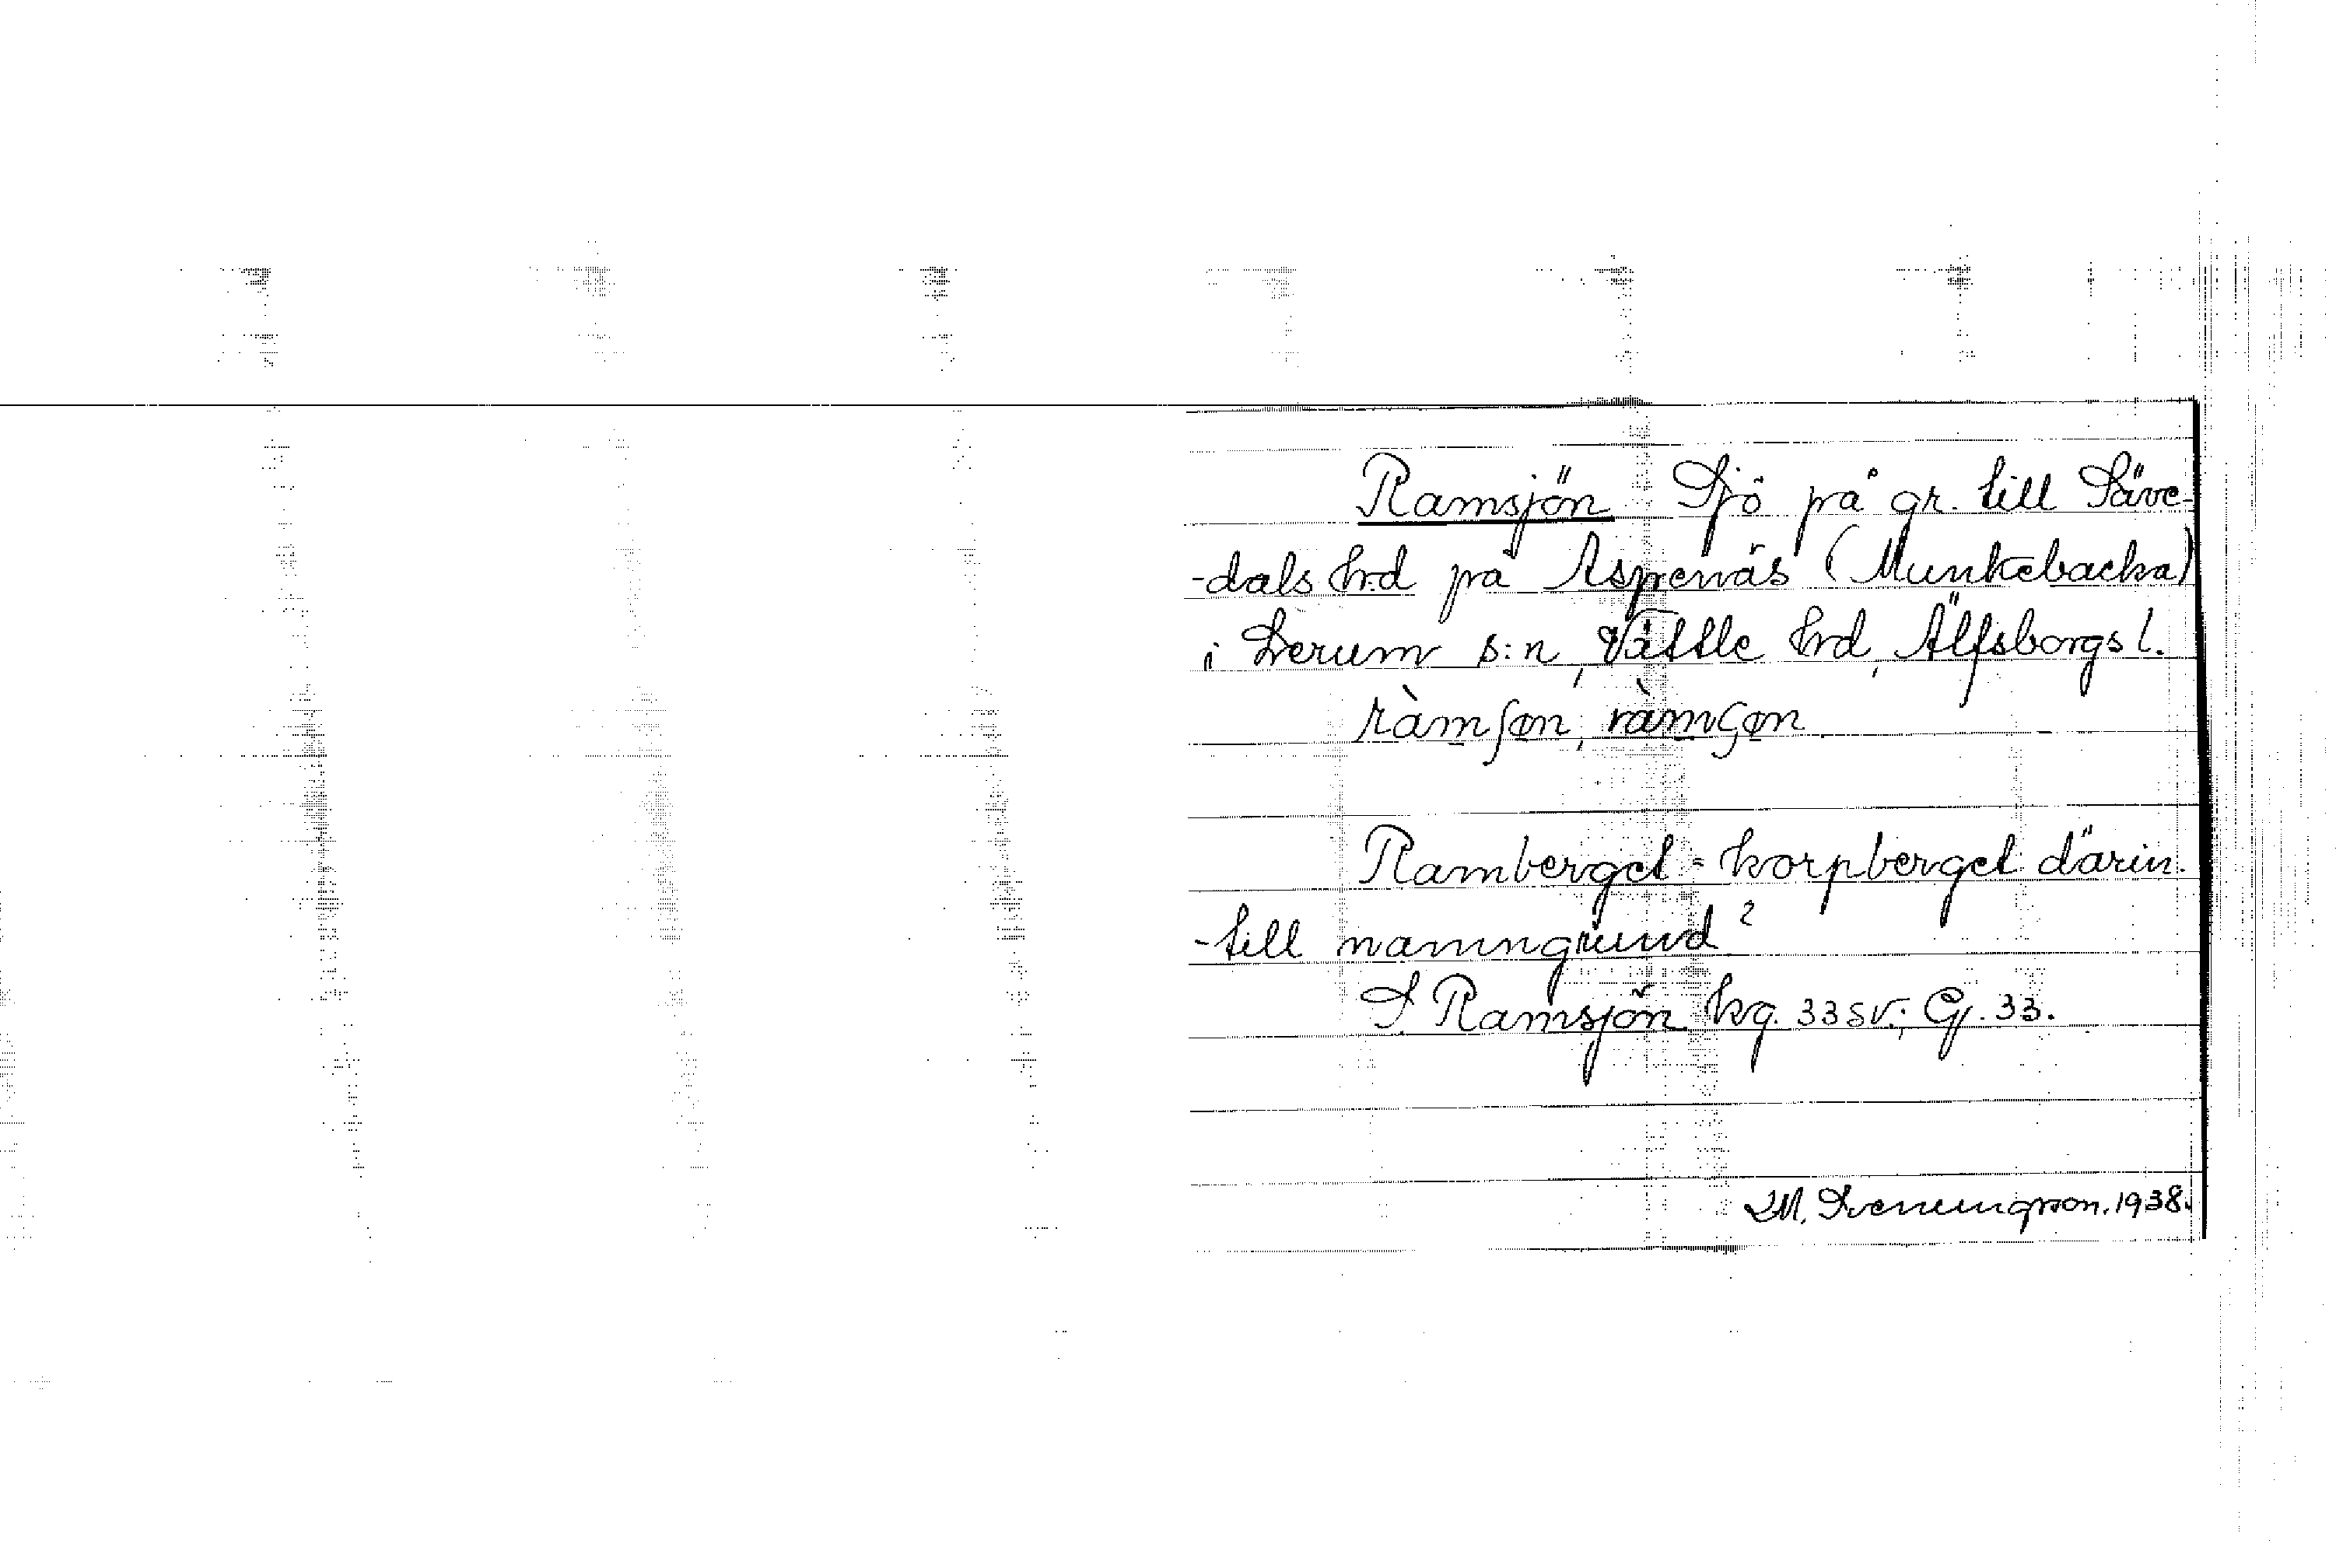 Ramsjön Sjö på gr. till Säve-
-dals hrd på Aspenäs (Munkebacka)
i Lerum s:n, Vättle hrd, Älfsborgs l.
ràmʃøn, ràmçøn
Ramberget = korpberget därin-
-till namngrund?
S. Ramsjön kg. 33 sv.; Gj. 33.
1938.